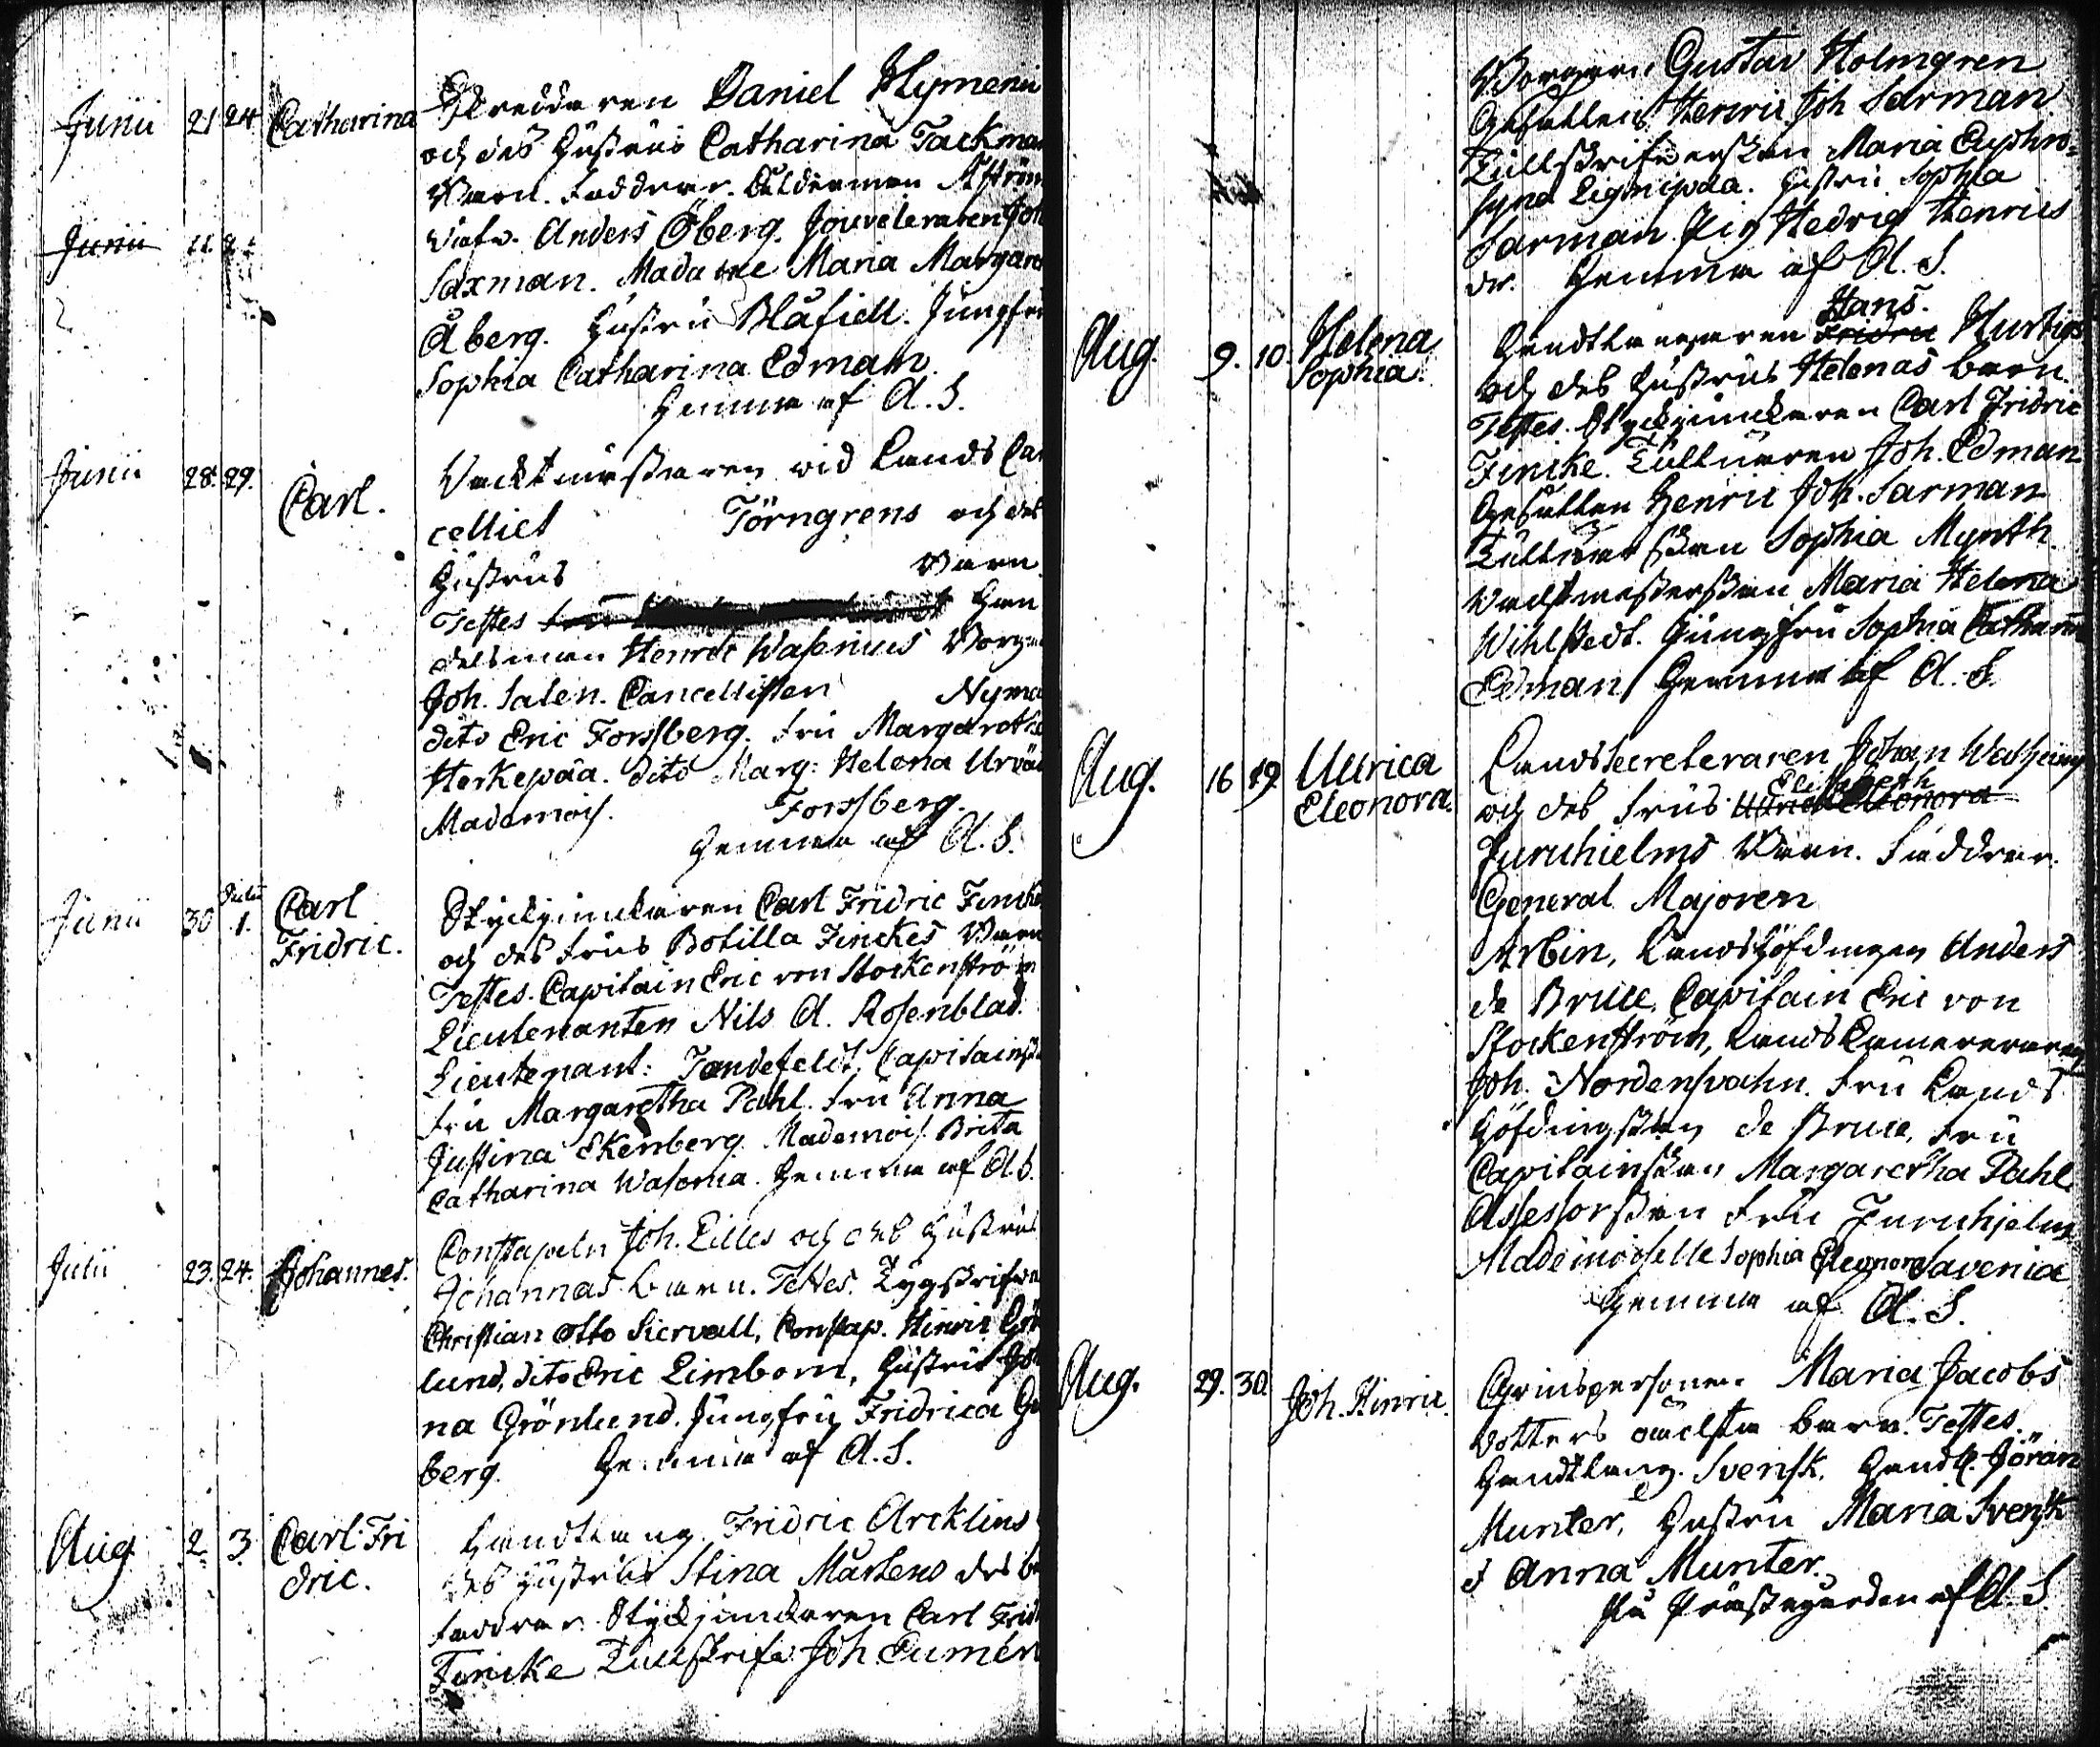 Junii 21 24 Catharina Skreddaren Daniel Hymenii
och des Hustrus Catharina Tackman
Barn. Faddrar. Ålderman Åström
Anders Öberg. Jouveleraren Joh
Saxman. Madame Maria Margare
Junii
Åberg. Hustru Blåfiell. Jungfru
Sophia Catharina Edman.
Hemma af A. S.
Junii 28. 29. Carl. Vacktmästaren wid Lands Can
celliet Törngrens och des
Hustrus Barn.
Testes Han
delsman Henric Wasenius Borga
Joh. Salen. Cancellisten Nyma
dito Eric Forssberg. Fru Margaretha
Herkepaa. dito Marg: Helena
Mademois. Forssberg.
Hemma af A. S.
Junii 30 Julii 1. Carl Fridric. Styckjunckaren Carl Fridric Fincke
och des Frus Botilla Finckes Barn
Testes. Capitain Eric von Stockenström
Lieutenanten Nils A. Rosenblad.
Lieutenant: Tandefeldt. Capitainsk
Fru Margaretha Pahl. Fru Anna
Justina Ekenberg. Mademois. Brita
Catharina Wasenia. Hemma af A. S.
Julii 23. 24. Johannes. Constapeln Joh. Lilles och des Hustrus
Johannas barn. Testes. Tygskrifva
Christian Otto Siervall, Constap. Hinric Grö
lund, dito Eric Limborn, Hustru Joh
na Grönlund. Jungfru Fridrica
berg. Hemma af A. S.
Aug 2. 3. Carl Fri
dric. Handtlang. Fridric Arcklins
des Hustrus Stina Mårtens des ba
Faddrar. Styckjunckaren Carl Frid
Fincke Tullskrifv. Joh. Eumen
Borgaren Gustav Holmgren
Gesällen Henric Joh Sarman
Tullskrifverskan Maria Euphro-
syna Lignipæa. Hustru Sophia
Sarman. Pig. Hedvig Henrics
dr. Hemma af A. S.
Aug. 9. 10. Helena
Sophia. Handtlangaren Hans. Hurtigs
och des Hustrus Helenas barn.
Testes. Styckjunckaren Carl Fridric
Fincke. Tullnären Joh. Edman
Gesällen Henric Joh. Sarman
Tullnärskan Sophia Mynth.
Vacktmästerskan Maria Helena
Wihlstedt. Jungfru Sophia Catharina
Edman Hemma af A. S.
Aug. 16 19 Ulrica
Eleonora. Landssecreteraren Johan
och des Frus Elisabeth Ulrica Eleonora
Furuhielms Barn. Faddrar.
General Majoren
Arbin, Landshöfdingen Anders
de Bruce, Capitain Eric von
Stockenström, Lands Camereraren
Joh. Nordensvahn. Fru Lands
Höfdingskan de Bruce, Fru
Capitainskan Margaretha Pahl.
Assessorskan Fru Furuhjelm
Mademoiselle Sophia Eleonora Savenia
Hemma af A. S.
Aug. 29. 30. Joh. Hinric. Maria Jacobs
dotters oächta barn. Testes.
Handtlang. Svensk. Handtl. Jöran
Munter, Hustru Maria Svensk
d Anna Munter.
På Prästegården af A. S.